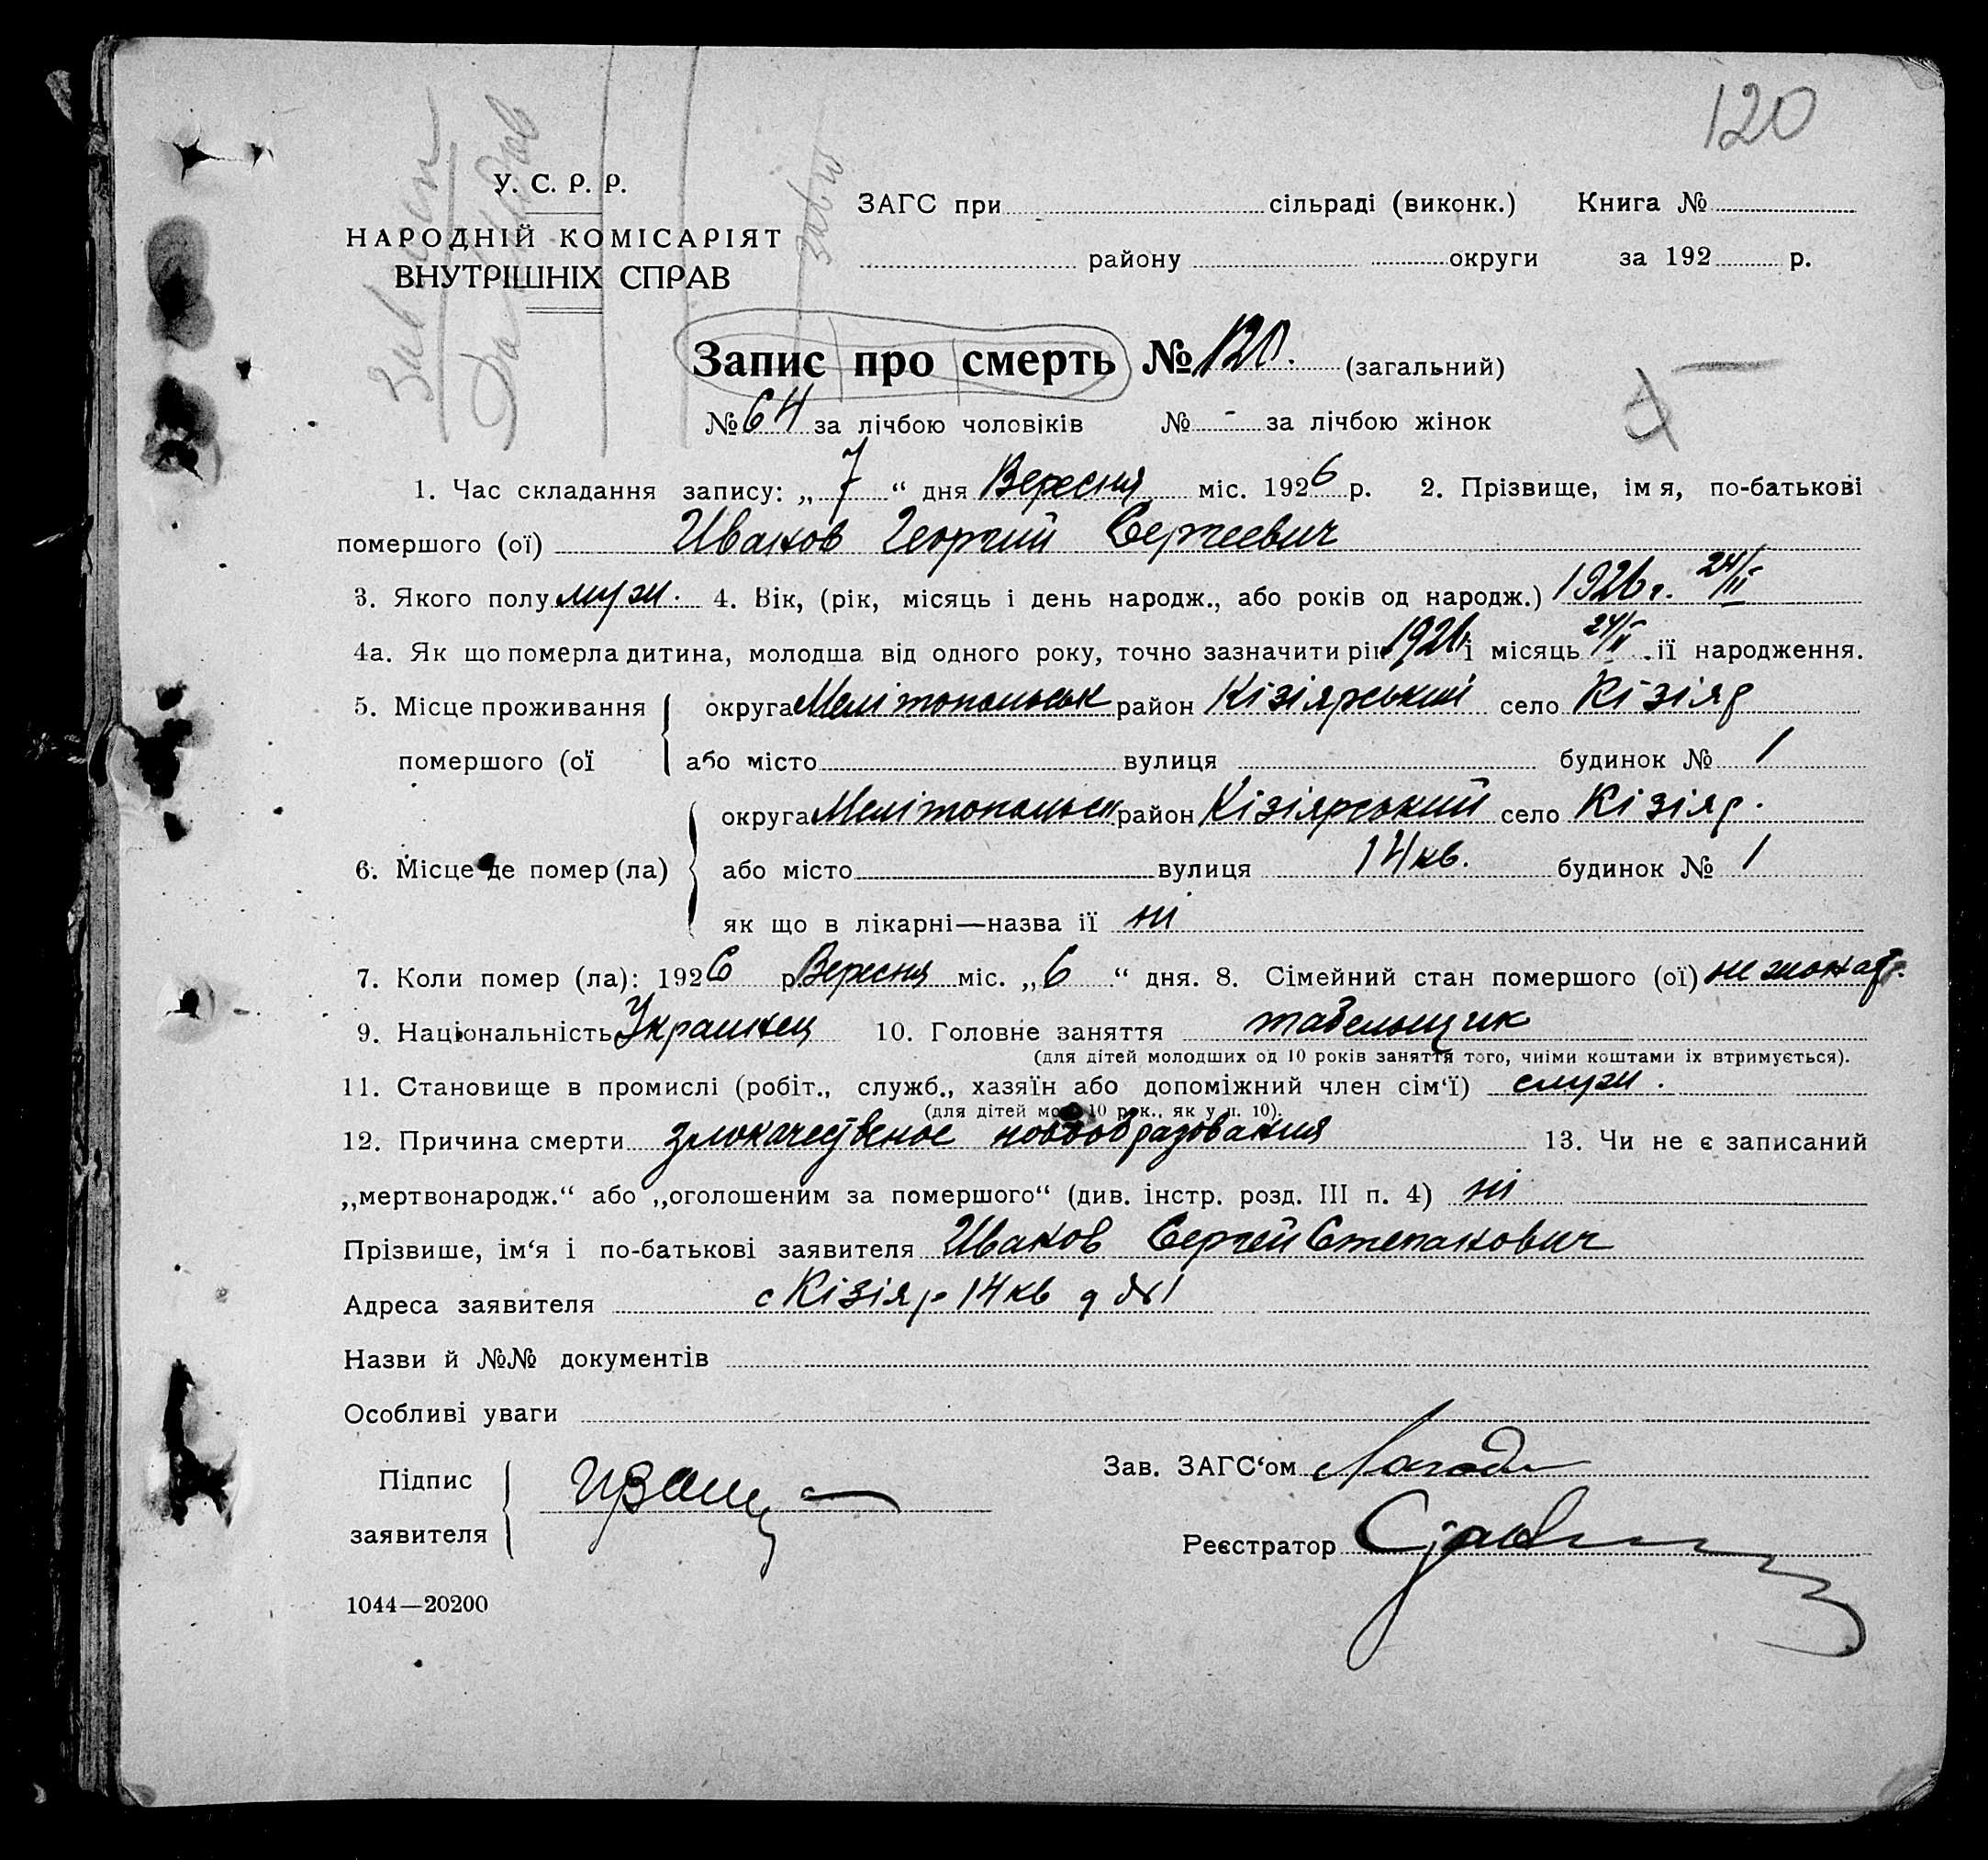 120
У. С. Р. Р.
НАРОДНІЙ КОМІСАРІЯТ
ВНУТРІШНІХ СПРАВ
ЗАГС при сільраді (виконк.) Книга №
району округи за 192 р.
Запис про смерть № 120. (загальний)
№ 64 за лічбою чоловіків № - за лічбою жінок
1. Час складання запису: „ 7 “ дня Вересня міс. 1926 р. 2. Прізвище, імя, по-батькові
помершого (ої) Иванов Георгий Сергеевич
3. Якого полу муж. 4. Вік, (рік, місяць і день народж., або років од народж.) 1926 г. 24/II
4а. Як що померла дитина, молодша від одного року, точно зазначити рік 1926 і місяць 24/II .ії народження.
5. Місце проживання округа Мелітопольськ район Кізіярський село Кізіяр
помершого (ої або місто вулиця будинок № 1
округа Мелітопольськ район Кізіярський село Кізіяр.
6. Місце де помер (ла) або місто вулиця 14 кв. будинок № 1
як що в лікарні—назва ії ні
7. Коли помер (ла): 1926 р. Вересня міс. „ 6 “ дня. 8. Сімейний стан помершого (ої) не жонат.
9. Національність Украинец 10. Головне заняття табельщик
(для дітей молодших од 10 років заняття того, чиїми коштами їх втримується).
11. Становище в промислі (робіт., служб., хазяїн або допоміжний член сім‘ї) служ.
(для дітей мол. 10 рок., як у п. 10).
12. Причина смерти злокачественое новообразования 13. Чи не є записаний
„мертвонародж.“ або „оголошеним за помершого“ (див. інстр. розд. III п. 4) ні
Прізвише, ім‘я і по-батькові заявителя Иванов Сергей Степанович
Адреса заявителя с Кізіяр 14 кв д № 1
Назви й №№ документів
Особливі уваги
Підпис
заявителя
Зав. ЗАГС‘ом
Реєстратор
1044—20200